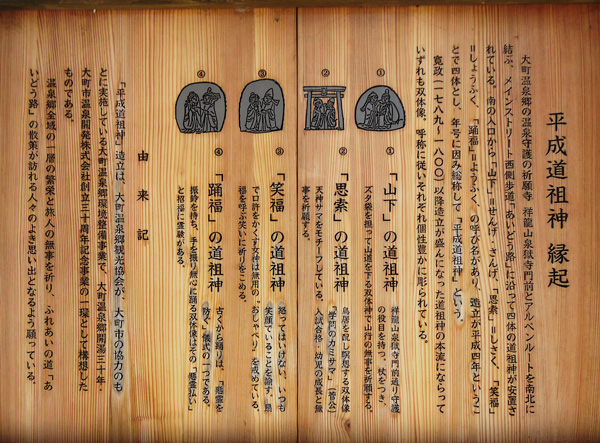 平成道祖神 縁起
大町温泉郷の温泉守護の祈願寺 祥龍山泉獄寺門前とアルペンルートを南北に
結ぶ、メインストリート西側歩道「あいどう路」に沿って四体の道祖神が安置さ
れている。南の入口から「山下」=せんげ、さんげ、「思索」=しさく、「笑福」
=しょうふく、「踊福」=ようふく、の呼び名があり、造立が平成四年というこ
とで四体とし、年号に因み総称して「平成道祖神」という。
寛政(一七八九〜一八〇〇)以降造立が盛んになった道祖神の本流にならって
いずれも双体像、呼称に従いそれぞれ個性豊かに彫られている。
①
②
③
④
①「山下」の道祖神
祥龍山泉獄寺門前通り守護
の役目を持つ。杖をつき、
ズタ袋を担って山道を下る双体神で山行の無事を祈願する。
②「思索」の道祖神
鳥居を配し瞑想する双体像
「学問のカミサマ」(菅公)
天神サマをモチーフしている。入試合格・幼児の成長と無
事を祈願する。
③「笑福」の道祖神
怒ってはいけない、いつも
笑顔でいることを諭す。扇
で口許をかくす女神は無用の〝おしゃべり〟を戒めている。
福を呼ぶ笑いに祈りをこめる。
④「踊福」の道祖神
古くから踊りは、「悪霊を
防ぐ」儀式の一つである。
振鈴を持ち、手を振り無心に踊る双体像はその〝悪霊払い〟
と招福に霊験がある。
由来記
「平成道祖神」造立は、大町温泉郷観光協会が、大町市の協力のも
とに実施している大町温泉郷環境整備事業で、大町温泉郷開湯三十年・
大町市温泉開発株式会社創立三十周年記念事業の一環として構想した
ものである。
温泉郷全域の一層の繁栄と旅人の無事を祈り、ふれあいの道「あ
いどう路」の散策が訪れる人々のよき思い出となるよう願っている。